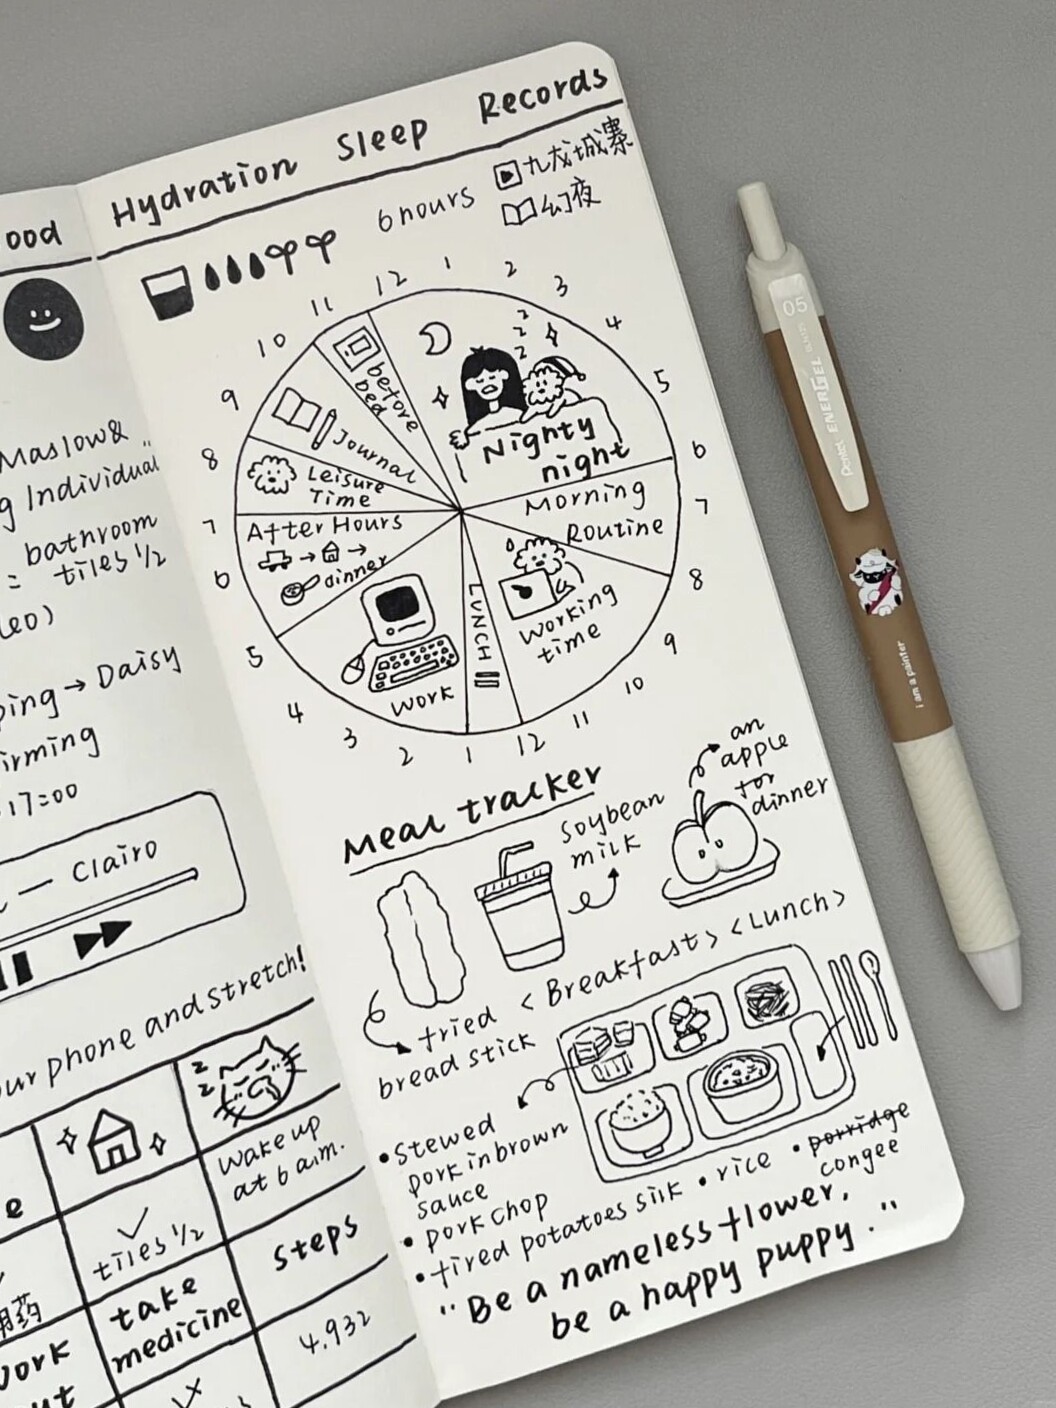 ood
Maslow&
g Individual
bathroom
= tiles 1/2
leo)
ping → Daisy
irming
17:00
— Clairo
ur phone and stretch!
z
z
wake up
at 6 a.m.
e
tiles 1/2
steps
用药
take
medicine
4.932
work
ut
Hydration Sleep Records
6 hours
九龙城寨
幻夜
12 1 2 3 4 5 6 7 8 9 10 11 12 1 2 3 4 5 6 7 8 9 10 11
z
z
z
z
Nighty
night
Morning
Routine
Working
time
LUNCH
work
After Hours
→ →
dinner
Leisure
Time
Journal
before
bed
Meal tracker
soybean
milk
an
apple
for
dinner
<Breakfast> <Lunch>
fried
bread stick
• Stewed
pork in brown
sauce
• pork chop
• fired potatoes silk • rice • porridge
congee
"Be a nameless flower,
be a happy puppy."
05
Pentel ENERGEL
i am a painter